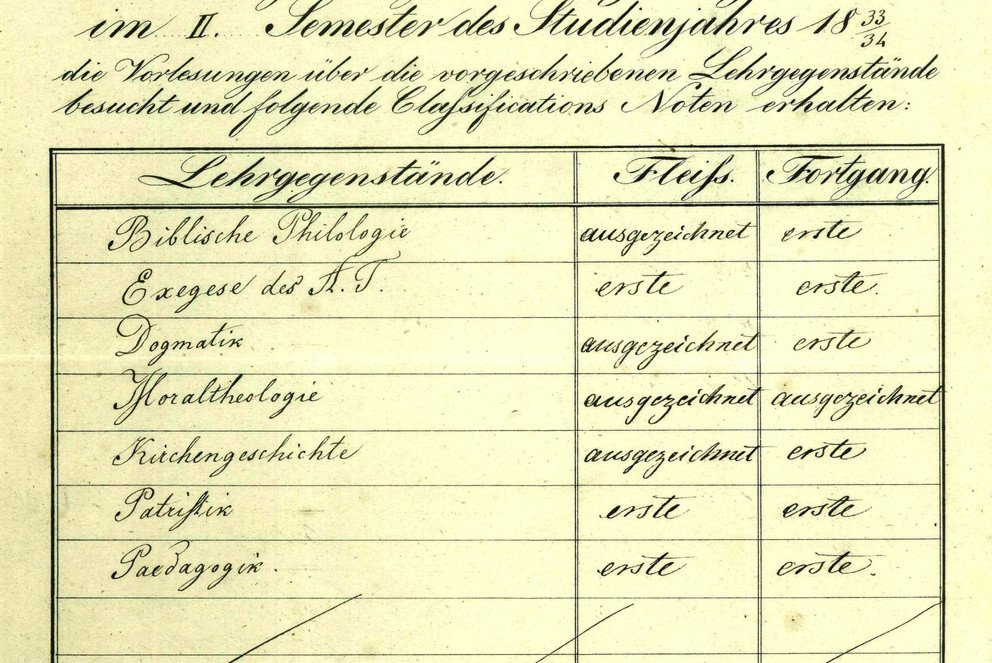 im II. Semester des Studienjahres 18 33/34
die Vorlesungen über die vorgeschriebenen Lehrgegenstände
besucht und folgende Claſsifications Noten erhalten:
Lehrgegenstände. Fleiſs. Fortgang.
Biblische Philologie ausgezeichnet erste
Exegese des A. T. erste erste.
Dogmatik ausgezeichnet erste
Moraltheologie ausgezeichnet ausgezeichnet
Kirchengeschichte ausgezeichnet erste
Patriſtik erste erste
Paedagogik. erste erste.